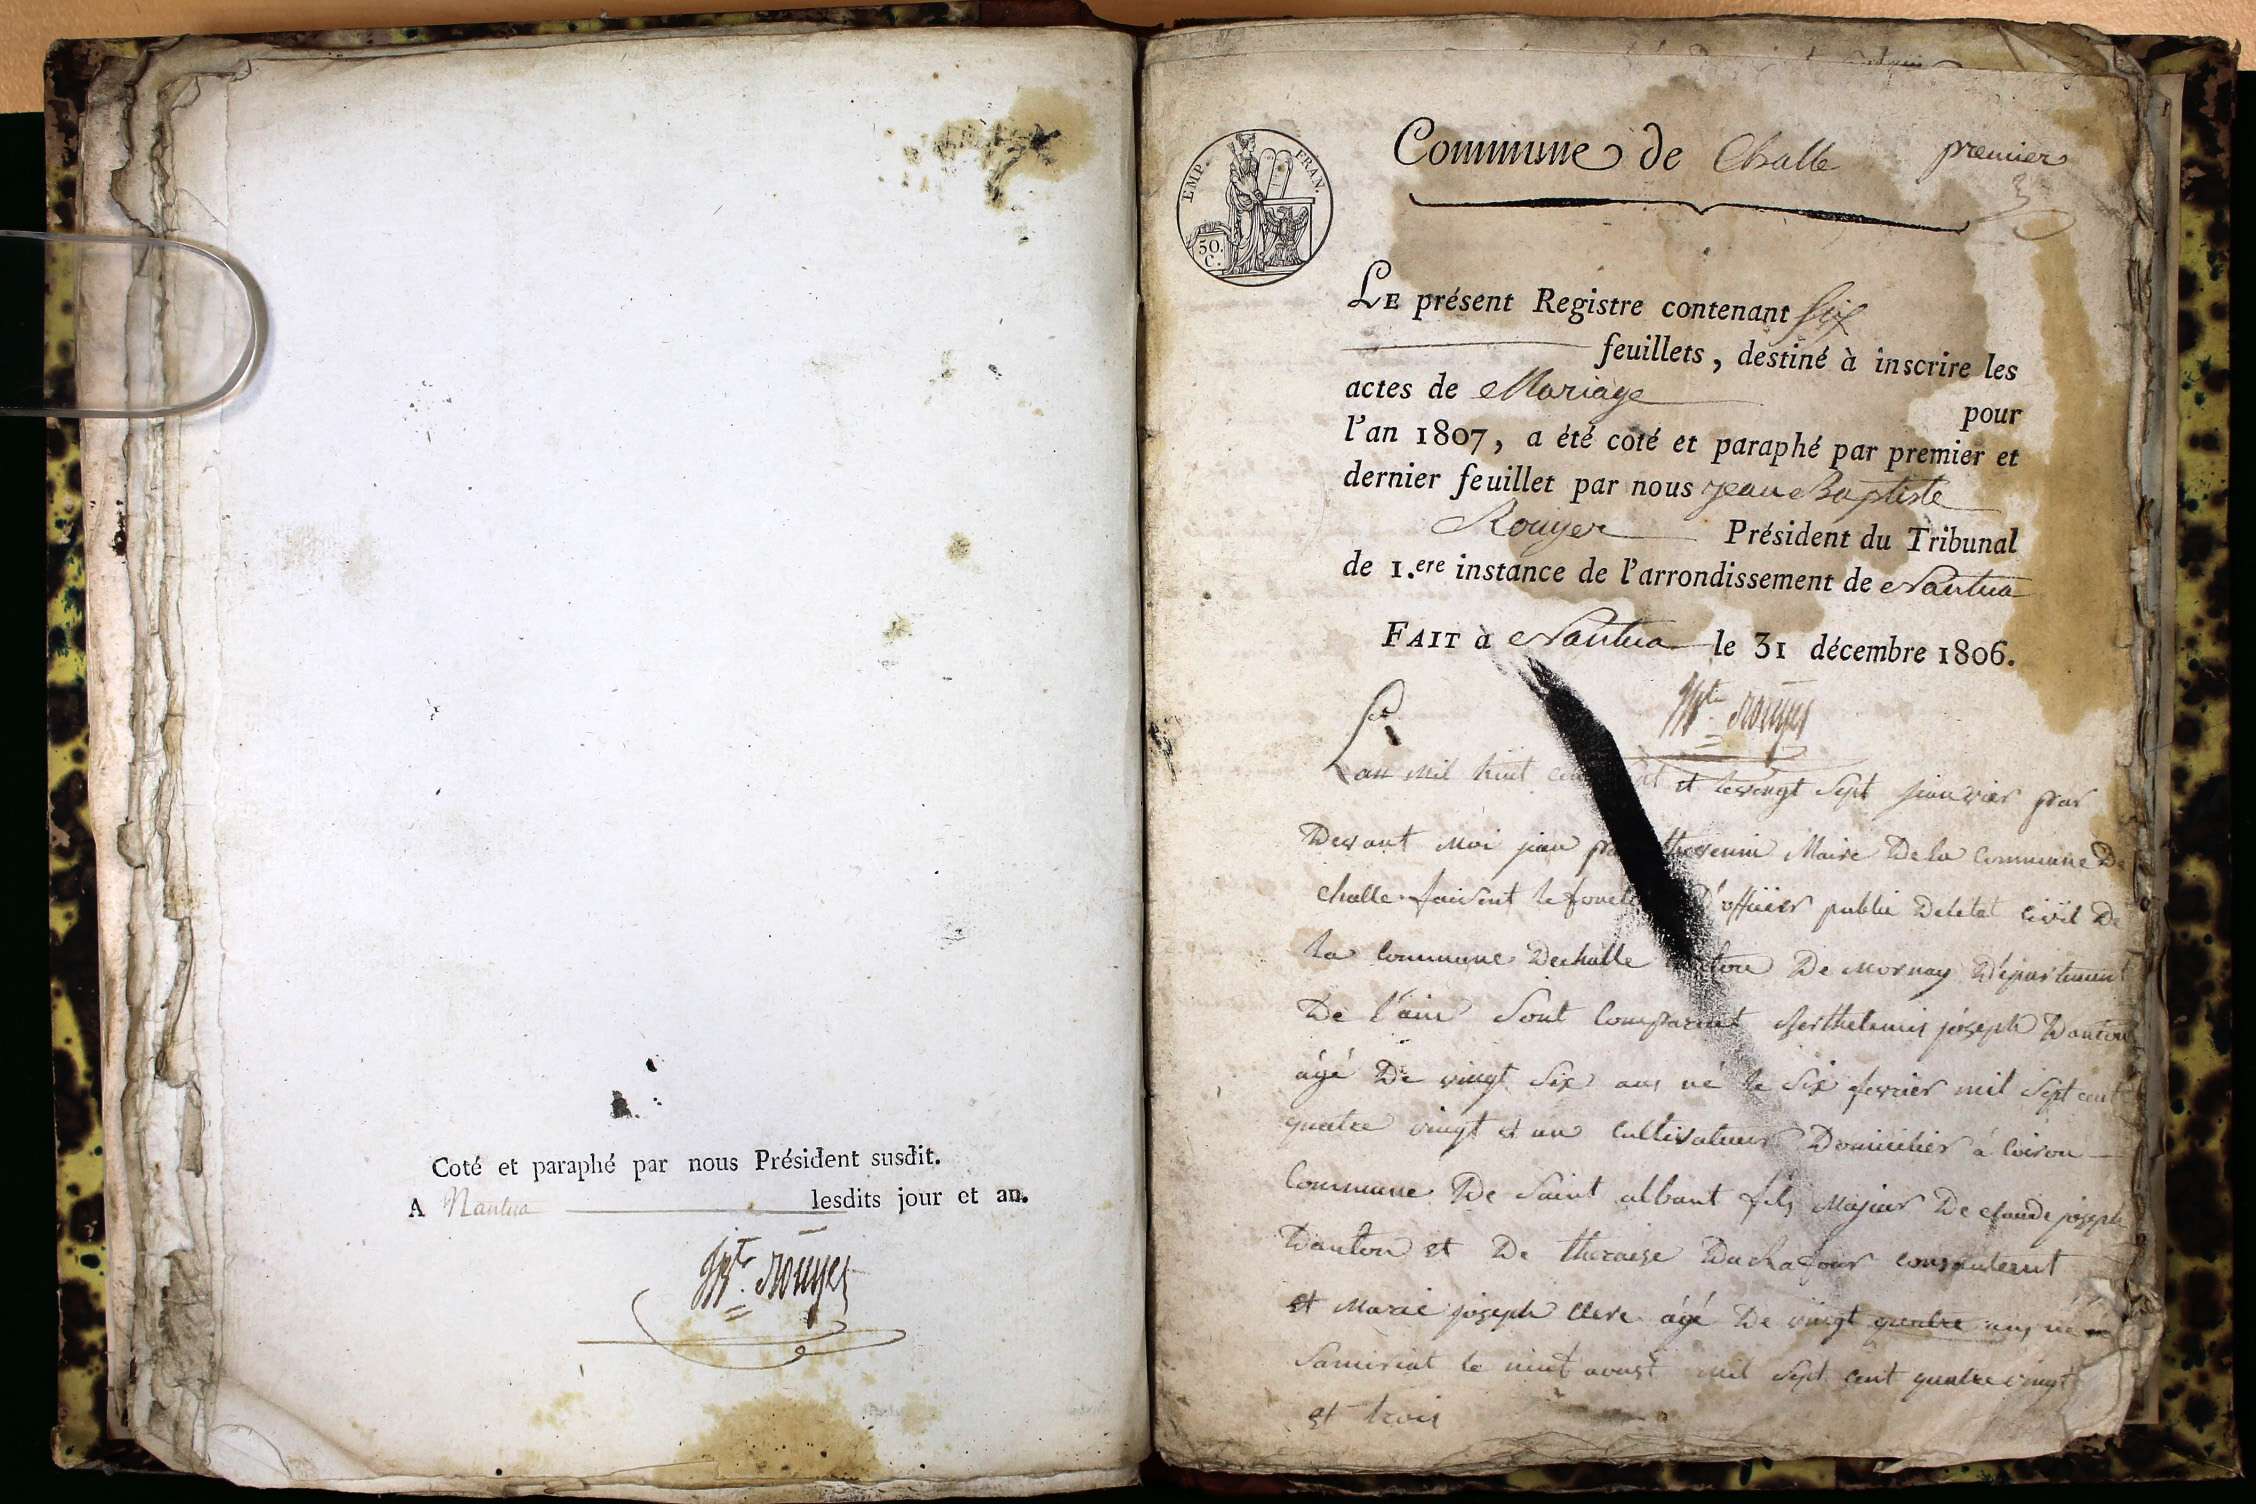 Coté et paraphé par nous Président susdit.
A Nantua lesdits jour et an.
Bte. Rouyer
EMP. FRAN.
50.
C.
Commune de Challe premier
LE présent Registre contenant six
feuillets, destiné à inscrire les
actes de Mariage pour
l'an 1807, a été coté et paraphé par premier et
dernier feuillet par nous jean Baptiste
Rouyer Président du Tribunal
de 1.ere instance de l'arrondissement de Nantua
FAIT à Nantua le 31 décembre 1806.
Bte. Rouyer
Lan mil huit et le vingt sept janvier par
Devant Moi jean thevenin Maire De la Commune De
challe faisant le D'officier public De letat civil De
la Commune De challe De Mornay Département
De l'ain Sont Comparut Berthelemis joseph Danton
agé De vingt Six ans né le Six fevrier mil Sept cent
quatre vingt et un Cultivateur Domicilier à Coiron
Commune De Saint albant fils Majeur De claude joseph
Danton et De theraise Duchafour
et Marie joseph Clere agé De vingt quatre ans né
le mil Sept Cent quatre vingt
et trois